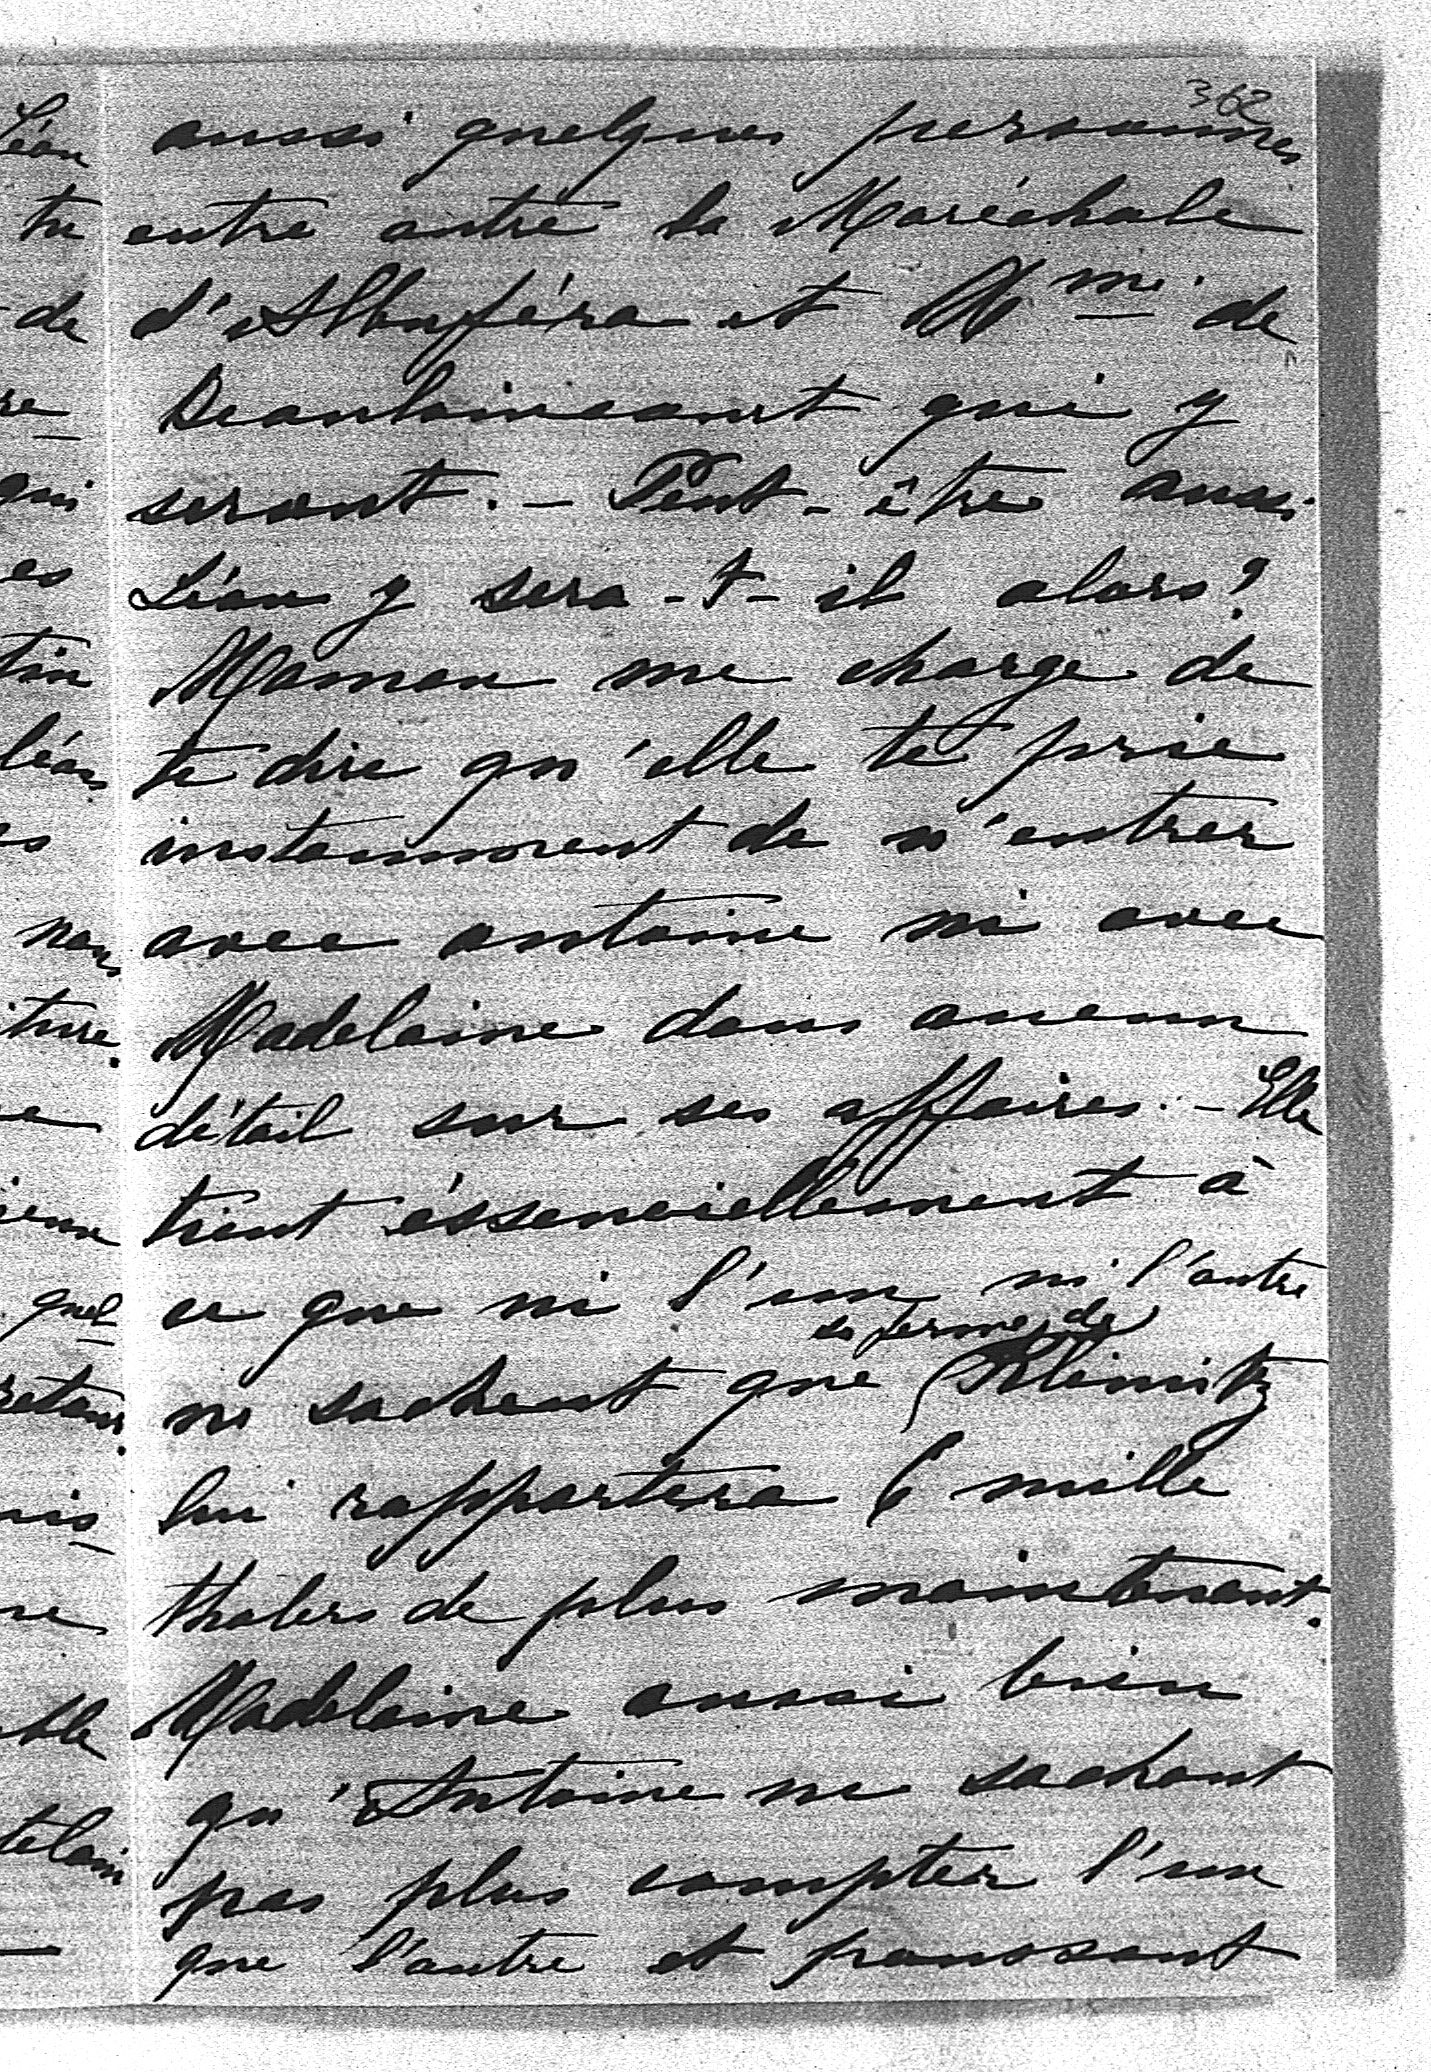 362
aussi quelques personnes
entre autre la Maréchale
d'Albuféra et Mme de
Beaulaincourt qui y
seront. - Peut-être aussi
Léon y sera-t-il alors?
Maman me charge de
te dire qu'elle te prie
instamment de n'entrer
avec Antoine ni avec
Madelaine dans aucun
détail sur ses affaires. - Elle
tient éssenciellement à
ce que ni l'un ni l'autre
ne sachent que
la ferme de
Klimitz
lui rapportera 6 mille
thalers de plus maintenant.
Madelaine aussi bien
qu'Antoine ne sachant
pas plus compter l'un
que l'autre et poussant
Léon
tu
de
re_
qui
es
tin
léon
es
nou,
iture.
quel_
retour.
nis_
ne
ble
telain